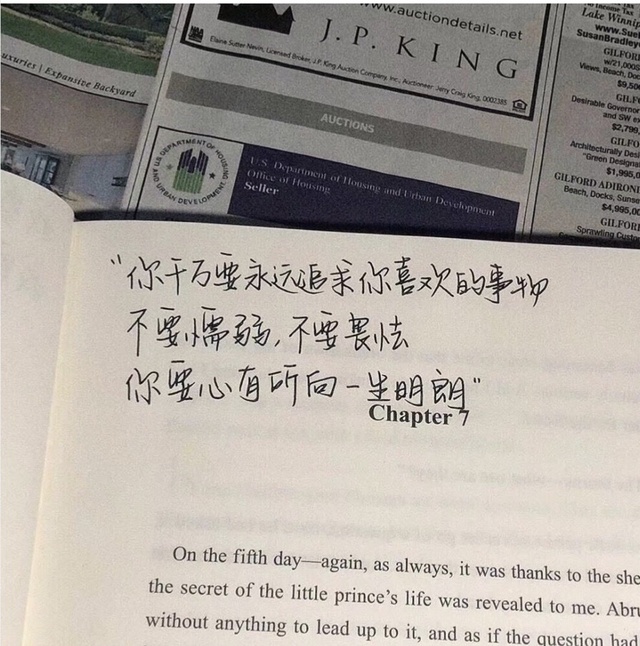 www.auctiondetails.net
J.P. KING
Elaine Sutter Nevin, Licensed Broker, J.P. King Auction Company, Inc., Auctioneer: Jerry Craig King, 0002385
uxuries | Expansive Backyard
AUCTIONS
U.S. DEPARTMENT OF HOUSING AND URBAN DEVELOPMENT
U.S. Department of Housing and Urban Development
Office of Housing
Seller
Lake Winni
www.Sue
SusanBradley
GILFOR
w/21,000S
Views, Beach, Do
$9,50
GILF
Desirable Governor
and SW ex
$2,790
GILFO
Architecturally Des
"Green Designa
$1,995,0
GILFORD ADIROND
Beach, Docks, Sunse
$4,995,00
GILFOR
Sprawling Custo
“你千万要永远追求你喜欢的事物
不要懦弱,不要畏怯
你要心有所向一生明朗”
Chapter 7
On the fifth day—again, as always, it was thanks to the she
the secret of the little prince’s life was revealed to me. Abru
without anything to lead up to it, and as if the question had